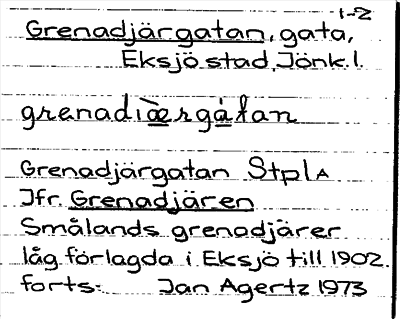 1-2
Grenadjärgatan, gata,
Eksjö stad, Jönk. l.
grenadiæ̀rgátan
Grenadjärgatan StplA
Jfr. Grenadjären
Smålands grenadjärer
låg förlagda i Eksjö till 1902.
forts: Jan Agertz 1973